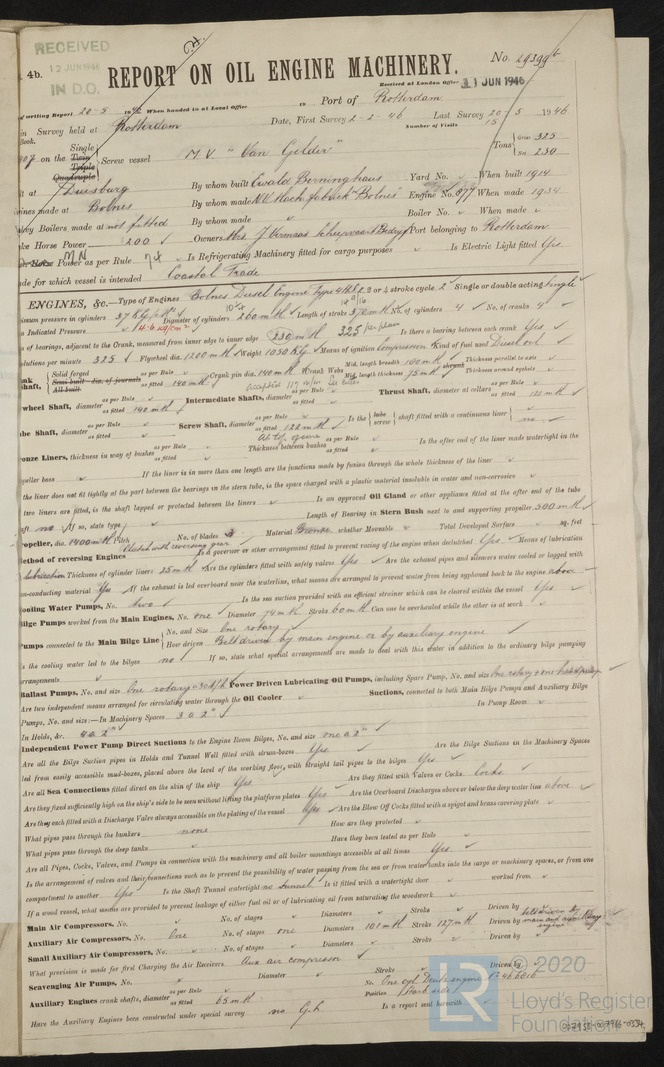 RECEIVED
12 JUN 1946
IN D.O.
4b.
REPORT ON OIL ENGINE MACHINERY.
No. 29399b
Received at London Office 11 JUN 1946
of writing Report 20-5 1946 When handed in at Local Office
Port of Rotterdam
in Survey held at Rotterdam
Date, First Survey 2-2-46 Last Survey 20-5 1946
Book.
Number of Visits 15
on the Single Twin Triple Quadruple Screw vessel M.V. "Van Gelder"
Tons Gross 325 Net 230
at Duisburg By whom built Ewald Berninghaus Yard No. When built 1914
Engines made at Bolnes By whom made "Bolnes" Engine No. 877 When made 1934
Boilers made at not fitted By whom made Boiler No. When made
Horse Power 200 Owners Port belonging to Rotterdam
Power as per Rule Is Refrigerating Machinery fitted for cargo purposes Is Electric Light fitted Yes.
for which vessel is intended Coastal Trade
ENGINES, &c.—Type of Engines Bolnes Diesel Engine 2 or 4 stroke cycle 2 Single or double acting Single
pressure in cylinders 37 Diameter of cylinders 260 Length of stroke No. of cylinders 4 No. of cranks 4
Indicated Pressure
of bearings, adjacent to the Crank, measured from inner edge to inner edge 230 Is there a bearing between each crank Yes.
Revolutions per minute 325 Flywheel dia. 1200 Weight 1050 Means of ignition Compression Kind of fuel used Diesel oil
Shaft, Solid forged Semi built dia. of journals All built as per Rule as fitted 140 Crank pin dia. 140 Crank Webs Mid. length breadth Mid. length thickness 75 shrunk Thickness parallel to axis Thickness around eyehole
Flywheel Shaft, diameter as per Rule as fitted 140 Intermediate Shafts, diameter as per Rule as fitted Thrust Shaft, diameter at collars as per Rule as fitted
Tube Shaft, diameter as per Rule as fitted Screw Shaft, diameter as per Rule as fitted 122 Is the tube screw shaft fitted with a continuous liner no
Bronze Liners, thickness in way of bushes as per Rule as fitted Thickness between bushes as per Rule as fitted Is the after end of the liner made watertight in the
propeller boss If the liner is in more than one length are the junctions made by fusion through the whole thickness of the liner
the liner does not fit tightly at the part between the bearings in the stern tube, is the space charged with a plastic material insoluble in water and non-corrosive
two liners are fitted, is the shaft lapped or protected between the liners Is an approved Oil Gland or other appliance fitted at the after end of the tube
shaft no If so, state type Length of Bearing in Stern Bush next to and supporting propeller 500
Propeller, dia. 1400 Pitch No. of blades Material Bronze whether Moveable Total Developed Surface sq. feet
Method of reversing Engines Clutch with reversing gear Is a governor or other arrangement fitted to prevent racing of the engine when declutched Yes Means of lubrication
Thickness of cylinder liners 25 Are the cylinders fitted with safety valves Yes Are the exhaust pipes and silencers water cooled or lagged with
non-conducting material Yes If the exhaust is led overboard near the waterline, what means are arranged to prevent water being syphoned back to the engine above
Cooling Water Pumps, No. two Is the sea suction provided with an efficient strainer which can be cleared within the vessel Yes
Bilge Pumps worked from the Main Engines, No. one Diameter 74 Stroke 60 Can one be overhauled while the other is at work
Pumps connected to the Main Bilge Line No. and Size One rotary How driven Belt driven by main engine or by auxiliary engine
Is the cooling water led to the bilges no If so, state what special arrangements are made to deal with this water in addition to the ordinary bilge pumping
arrangements
Ballast Pumps, No. and size One rotary Power Driven Lubricating Oil Pumps, including Spare Pump, No. and size
Are two independent means arranged for circulating water through the Oil Cooler Suctions, connected to both Main Bilge Pumps and Auxiliary Bilge
Pumps, No. and size:—In Machinery Spaces 3 a 2" In Pump Room
In Holds, &c. 4 a 2"
Independent Power Pump Direct Suctions to the Engine Room Bilges, No. and size one a 2"
Are all the Bilge Suction pipes in Holds and Tunnel Well fitted with strum-boxes Yes Are the Bilge Suctions in the Machinery Spaces
led from easily accessible mud-boxes, placed above the level of the working floor, with straight tail pipes to the bilges Yes
Are all Sea Connections fitted direct on the skin of the ship Yes Are they fitted with Valves or Cocks Cocks
Are they fixed sufficiently high on the ship's side to be seen without lifting the platform plates Yes Are the Overboard Discharges above or below the deep water line above
Are they each fitted with a Discharge Valve always accessible on the plating of the vessel Yes Are the Blow Off Cocks fitted with a spigot and brass covering plate
What pipes pass through the bunkers none How are they protected
What pipes pass through the deep tanks Have they been tested as per Rule
Are all Pipes, Cocks, Valves, and Pumps in connection with the machinery and all boiler mountings accessible at all times Yes.
Is the arrangement of valves and their connections such as to prevent the possibility of water passing from the sea or from water tanks into the cargo or machinery spaces, or from one
compartment to another Yes Is the Shaft Tunnel watertight no tunnel Is it fitted with a watertight door worked from
If a wood vessel, what means are provided to prevent leakage of either fuel oil or of lubricating oil from saturating the woodwork
Main Air Compressors, No. No. of stages Diameters Stroke Driven by
Auxiliary Air Compressors, No. One No. of stages one Diameters 101 Stroke 127 Driven by belt driven by main and auxiliary engine
Small Auxiliary Air Compressors, No. No. of stages Diameters Stroke Driven by
What provision is made for first Charging the Air Receivers Aux. air compressor
Scavenging Air Pumps, No. Diameter Stroke Driven by
Auxiliary Engines crank shafts, diameter as per Rule as fitted 65 No. One cyl. Deutz engine Position
Have the Auxiliary Engines been constructed under special survey no Is a report sent herewith
LR
© 2020
Lloyd's Register
Foundation
007958-007966-0334